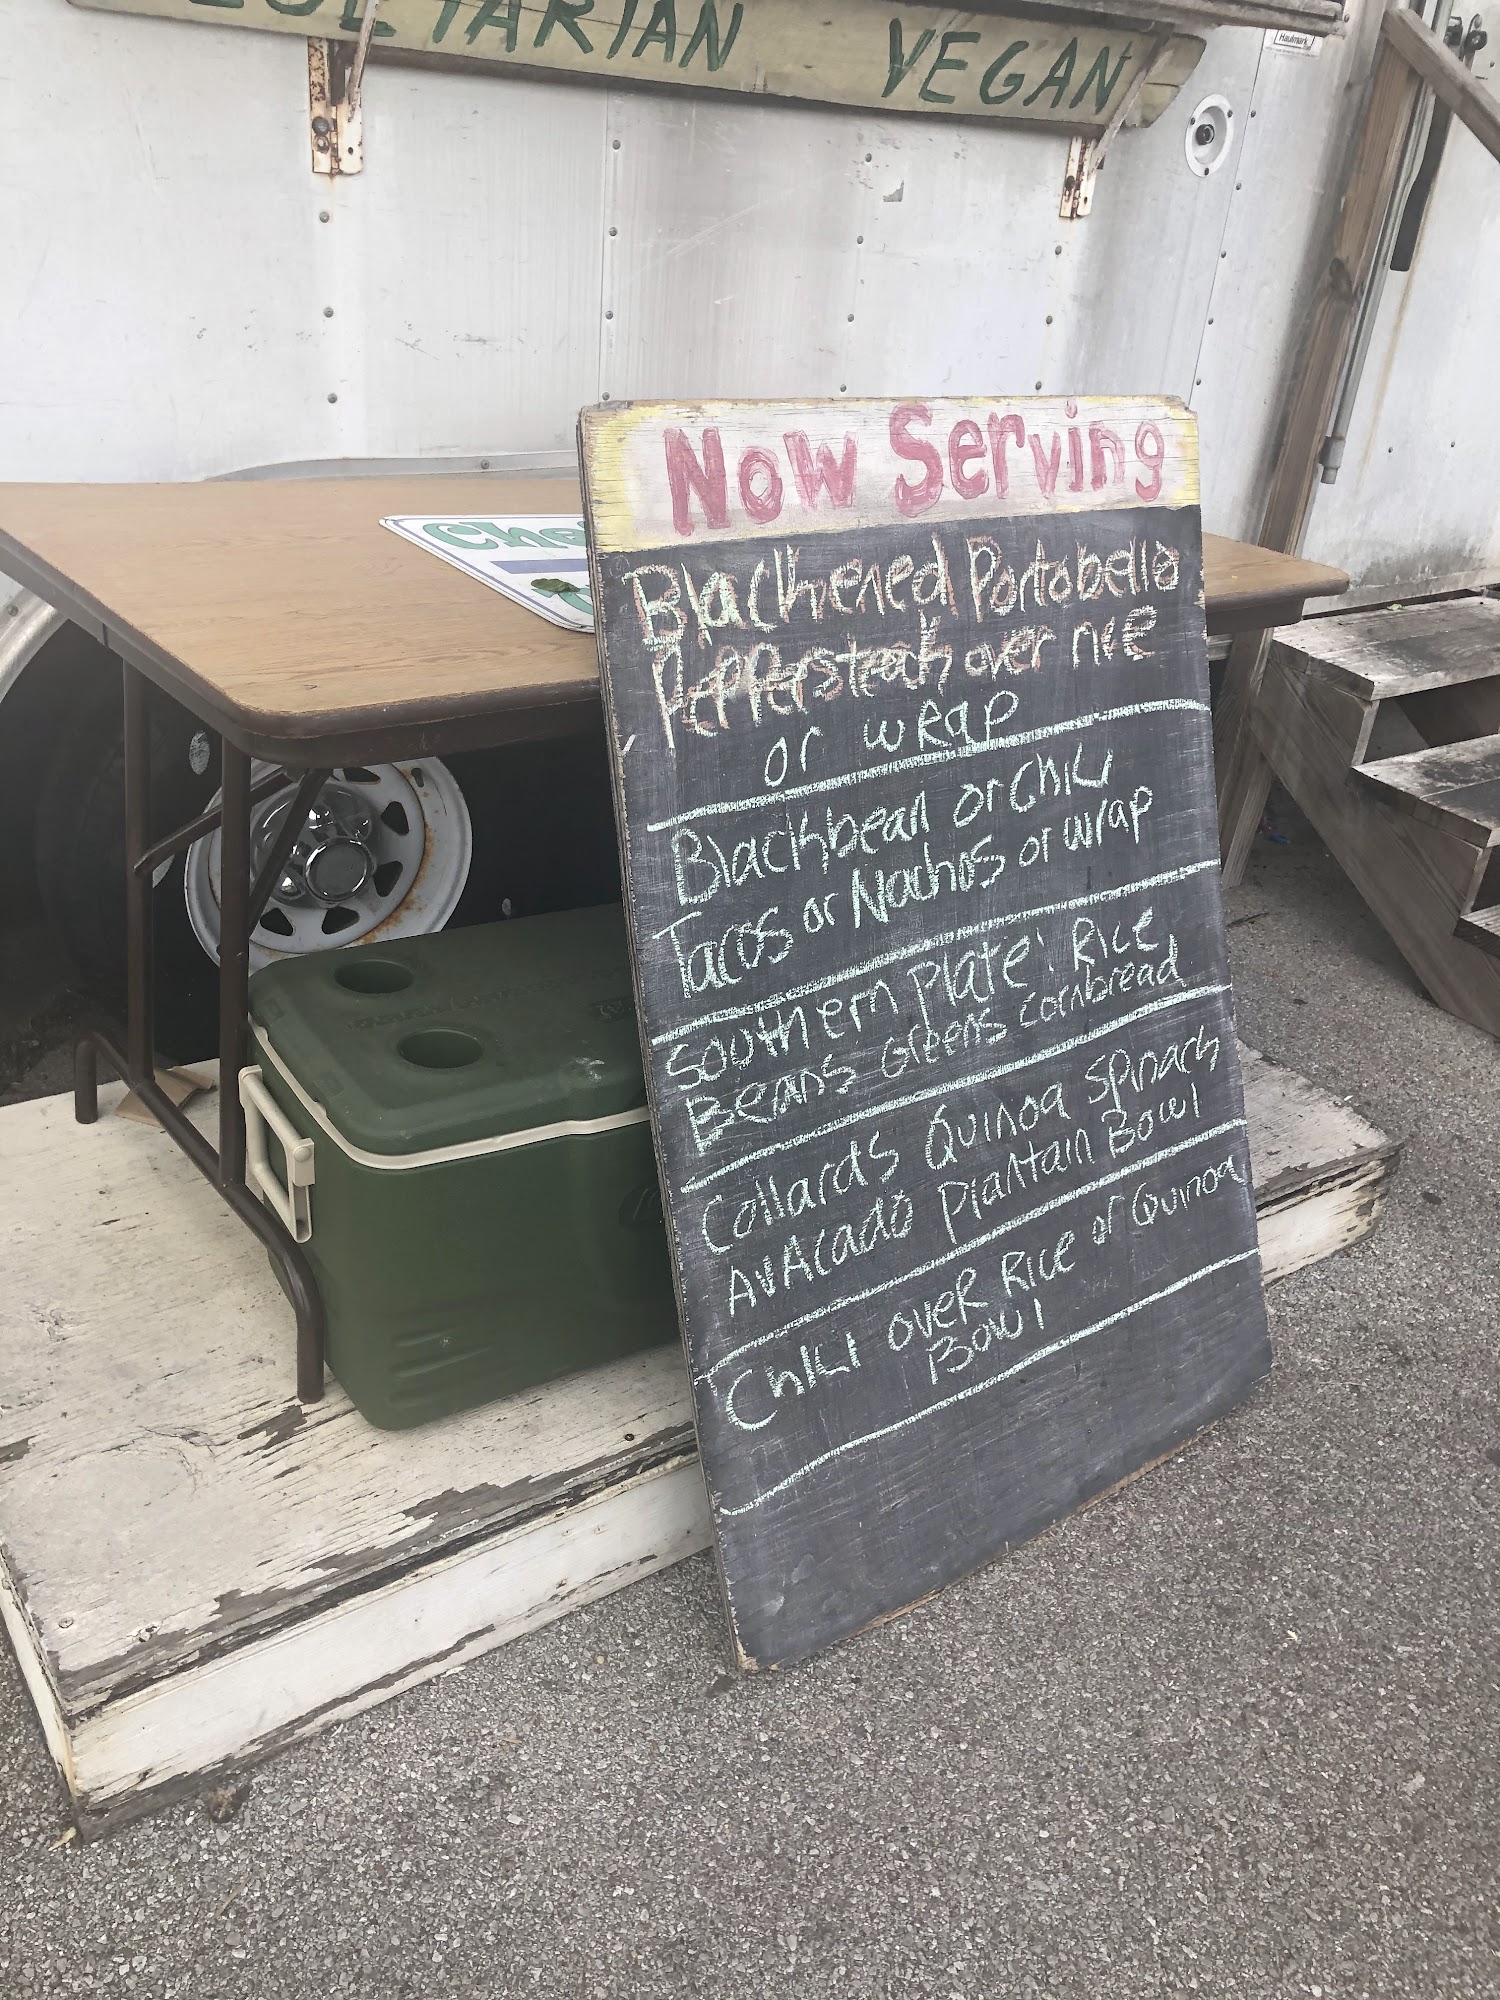 VEGAN
Haulmark
Now Serving
Blackened Portobello
Peppersteak over rice
or wRap
Blackbean or Chili
Tacos or Nachos or wrap
Southern Plate: Rice
Beans Greens cornbread
Collards Quinoa Spinach
AvAcado Plantain Bowl
Chili oveR Rice or Quinoa
Bowl